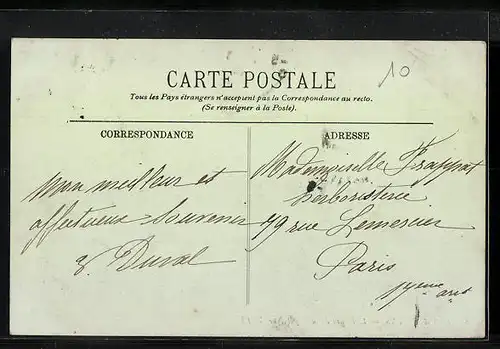 CARTE POSTALE
10
Tous les Pays étrangers n'acceptent pas la Correspondance au recto.
(Se renseigner à la Poste).
CORRESPONDANCE
Mon meilleur et
affectueux Souvenir
Duval
ADRESSE
Mademoiselle Frappat
herboristerie
79 rue Lemercier
Paris
17eme arrt